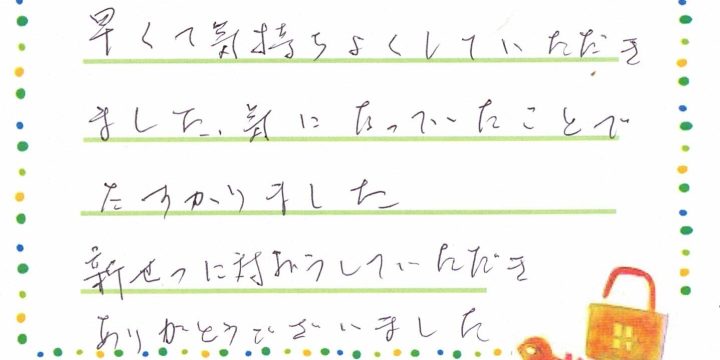 早くて気持ちよくしていただき
ました、気になっていたことで
たすかりました
新せつに対おうしていただき
ありがとうございました